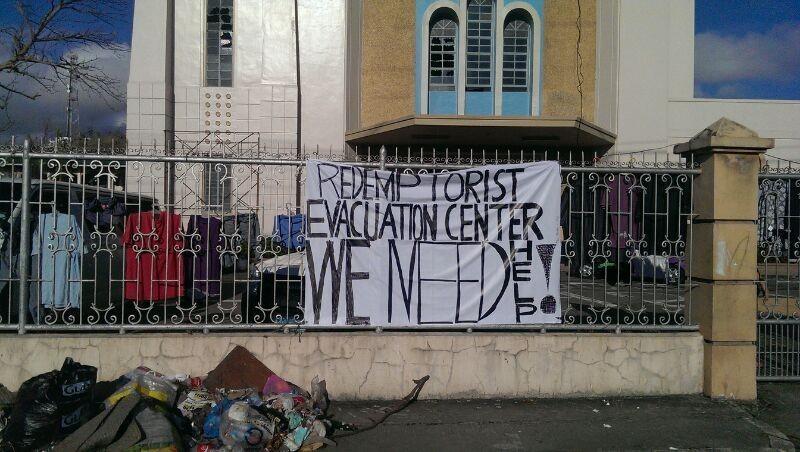 REDEMPTORIST
EVACUATION CENTER
WE NEED HELP!